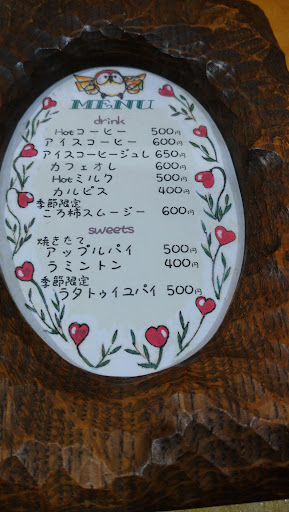 MENU
drink
Hotコーヒー 500円
アイスコーヒー 600円
アイスコーヒージュレ 650円
カフェオレ 600円
Hotミルク 500円
カルピス 400円
季節限定
ころ柿スムージー 600円
sweets
焼きたて
アップルパイ 500円
ラミントン 400円
季節限定
ラタトゥイユパイ 500円